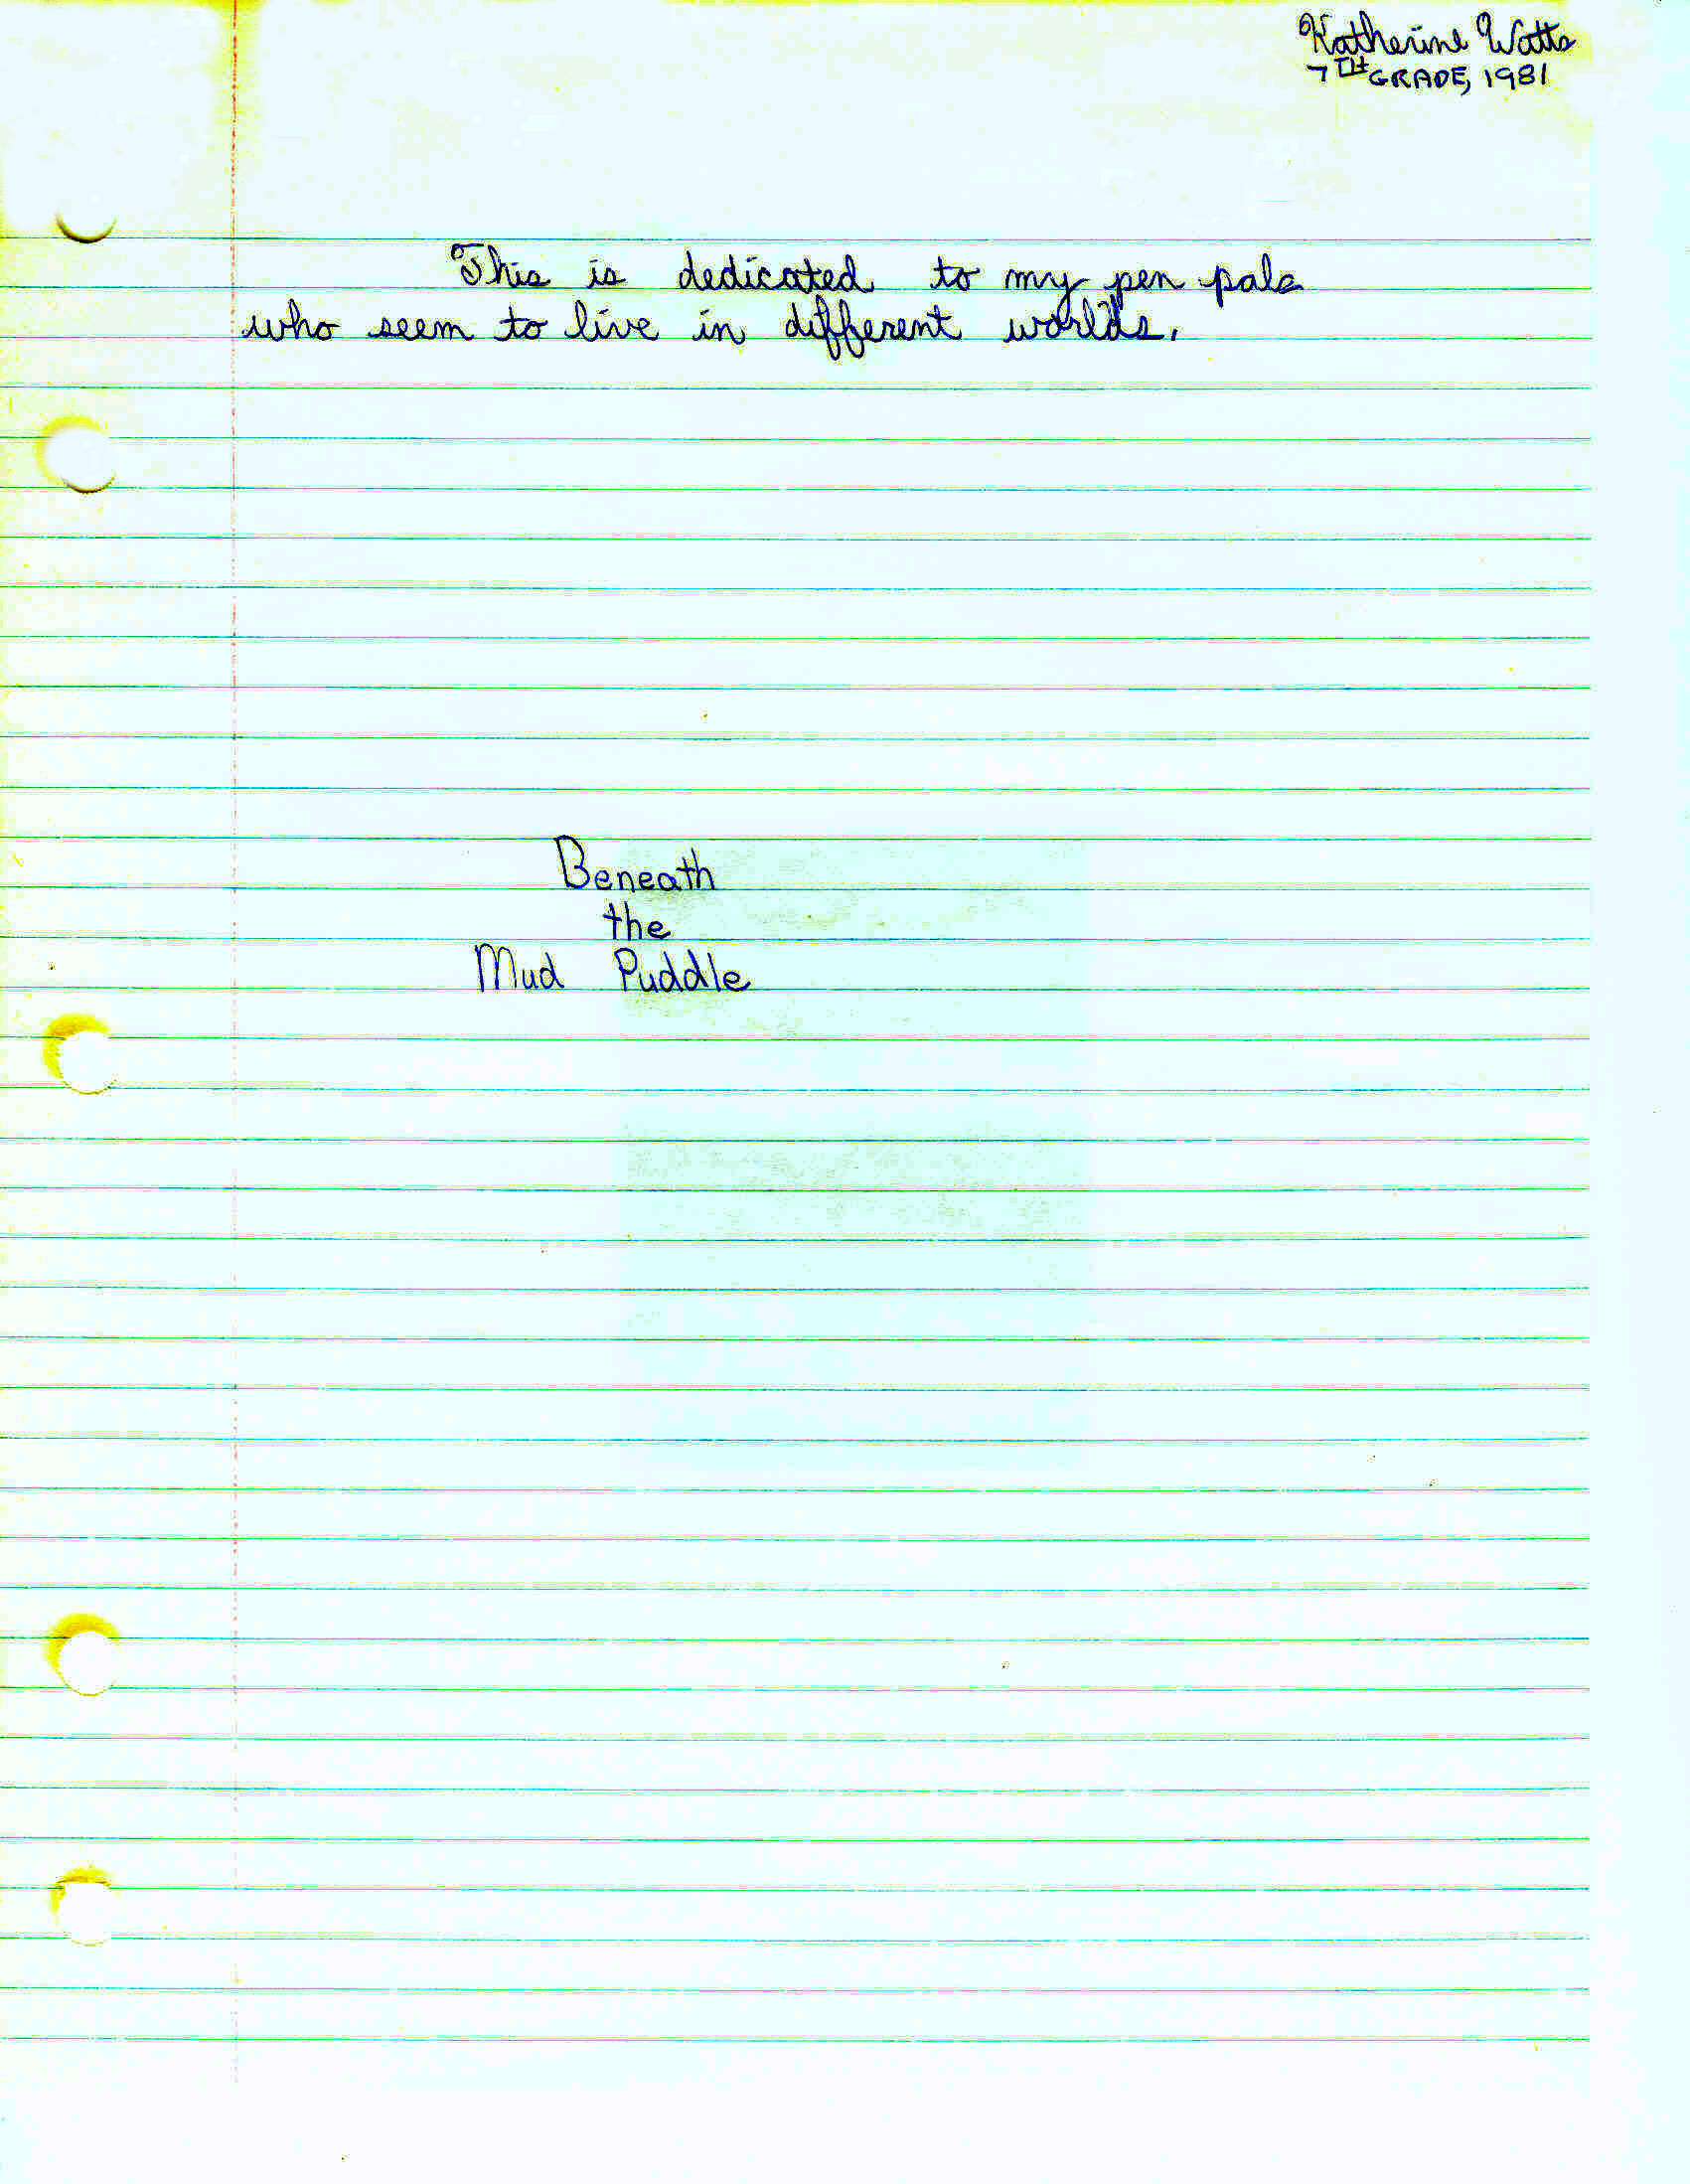 Katherine Watts
7TH GRADE, 1981
This is dedicated to my pen pals
who seem to live in different worlds.
Beneath
the
Mud Puddle